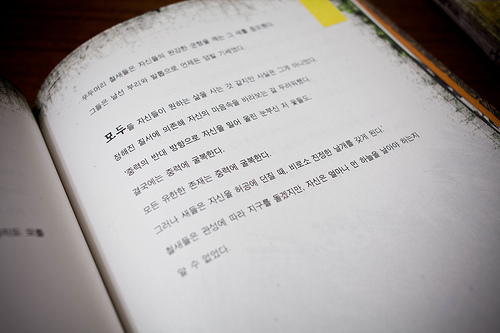 우두머리 철새들은 자신들의 완강한 균형을 깨는 그 새를 증오했다.
그들은 날선 부리와 발톱으로 언제든 덤빌 기세였다.
모두들 자신들이 원하는 삶을 사는 것 같지만 사실은 그게 아니었다.
정해진 질서에 의존해 자신의 마음속을 바라보는 걸 두려워했다.
중력의 반대 방향으로 자신을 밀어 올린 눈부신 저 꽃들도,
결국에는 중력에 굴복한다.
모든 유한한 존재는 중력에 굴복한다.
그러나 새들은 자신을 허공에 던질 때, 비로소 진정한 날개를 갖게 된다.
철새들은 관성에 따라 지구를 돌겠지만, 자신은 얼마나 먼 하늘을 날아야 하는지
알 수 없었다.